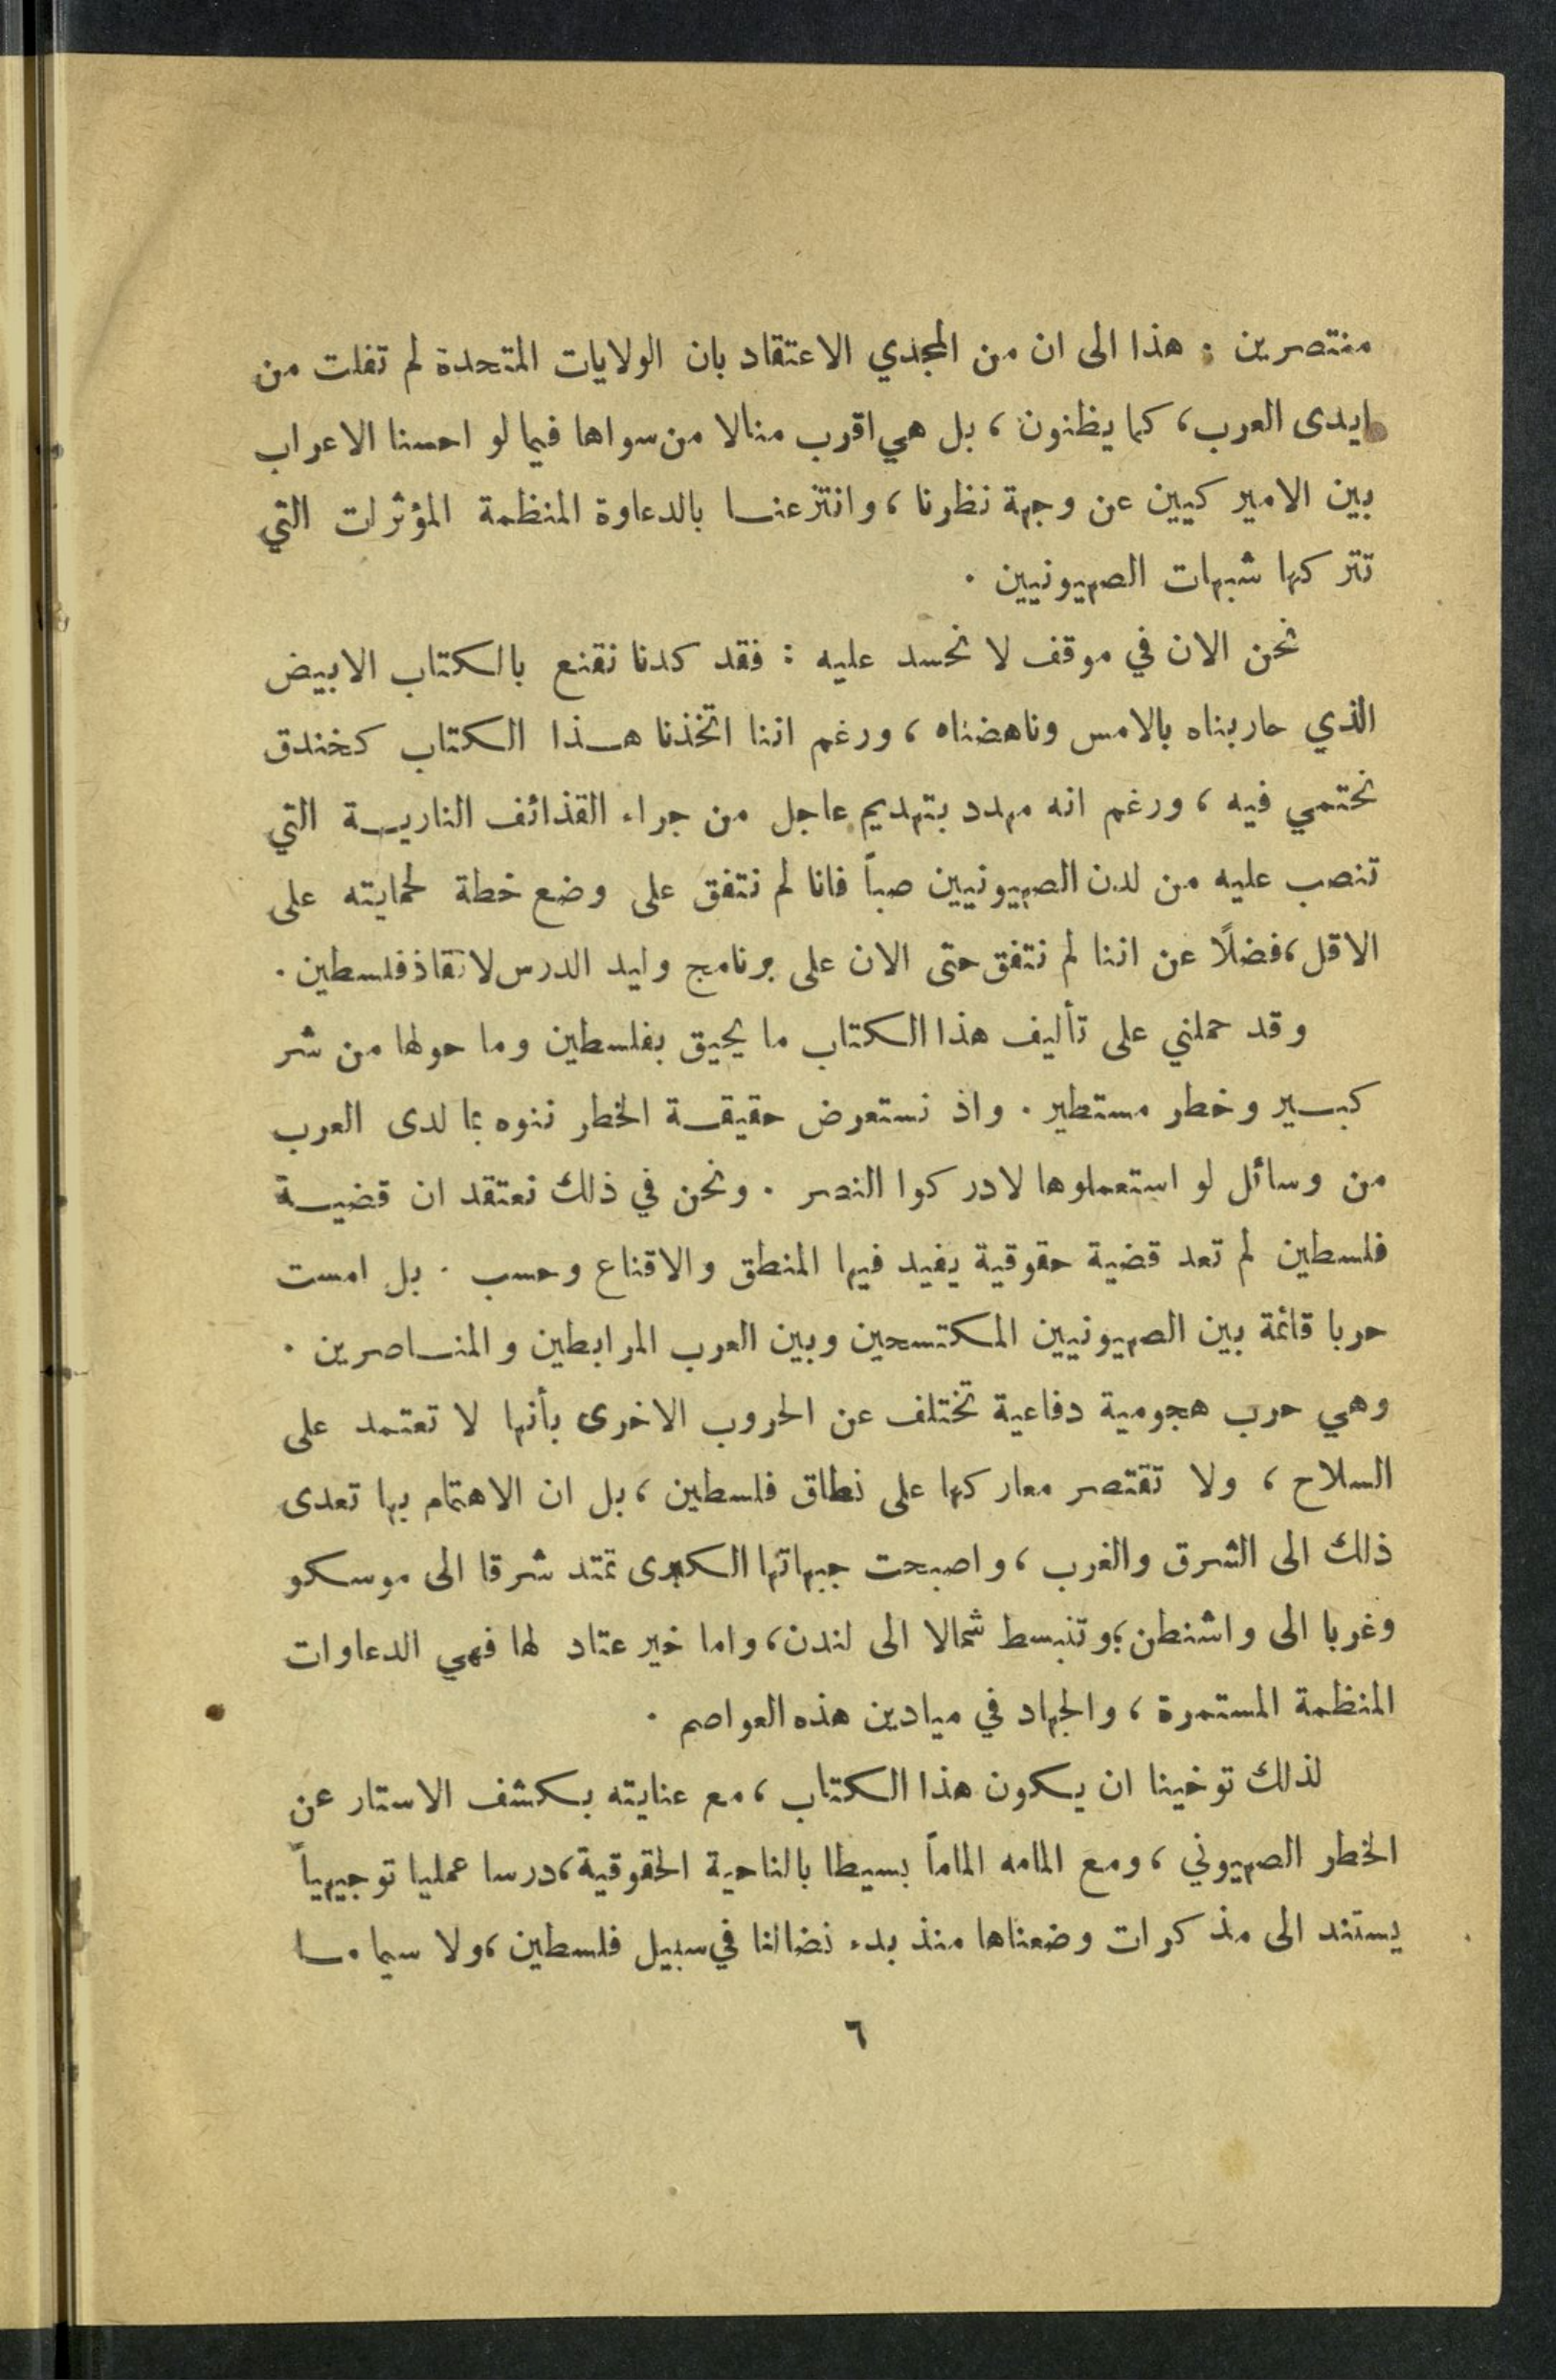 منتصرين . هذا الى ان من المجدي الاعتقاد بان الولايات المتحدة لم تفلت من
ايدى العرب، كما يظنون، بل هي اقرب منالا من سواها فيما لو احسنا الاعراب
بين الاميركيين عن وجهة نظرنا، وانتزعنا بالدعاوة المنظمة المؤثرات التي
تتركها شبهات الصهيونيين .
نحن الان في موقف لا نحسد عليه : فقد كدنا نقنع بالكتاب الابيض
الذي حاربناه بالامس وناهضناه، ورغم اننا اتخذنا هذا الكتاب كخندق
نحتمي فيه، ورغم انه مهدد بتهديم عاجل من جراء القذائف النارية التي
تنصب عليه من لدن الصهيونيين صباً فانا لم نتفق على وضع خطة لحمايته على
الاقل، فضلاً عن اننا لم نتفق حتى الان على برنامج وليد الدرس لانقاذ فلسطين .
وقد حملني على تأليف هذا الكتاب ما يحيق بفلسطين وما حولها من شر
كبير وخطر مستطير . واذ نستعرض حقيقة الخطر ننوه بما لدى العرب
من وسائل لو استعملوها لادركوا النصر . ونحن في ذلك نعتقد ان قضية
فلسطين لم تعد قضية حقوقية يفيد فيها المنطق والاقناع وحسب . بل امست
حربا قائمة بين الصهيونيين المكتسحين وبين العرب المرابطين والمناصرين .
وهي حرب هجومية دفاعية تختلف عن الحروب الاخرى بأنها لا تعتمد على
السلاح، ولا تقتصر معاركها على نطاق فلسطين، بل ان الاهتمام بها تعدى
ذلك الى الشرق والغرب، واصبحت جبهاتها الكبرى تمتد شرقا الى موسكو
وغربا الى واشنطن، وتنبسط شمالا الى لندن، واما خير عتاد لها فهي الدعاوات
المنظمة المستمرة، والجهاد في ميادين هذه العواصم .
لذلك توخينا ان يكون هذا الكتاب، مع عنايته بكشف الاستار عن
الخطر الصهيوني، ومع المامه الماماً بسيطا بالناحية الحقوقية، درسا عمليا توجيهياً
يستند الى مذكرات وضعناها منذ بدء نضالنا في سبيل فلسطين، ولا سيما ما
٦